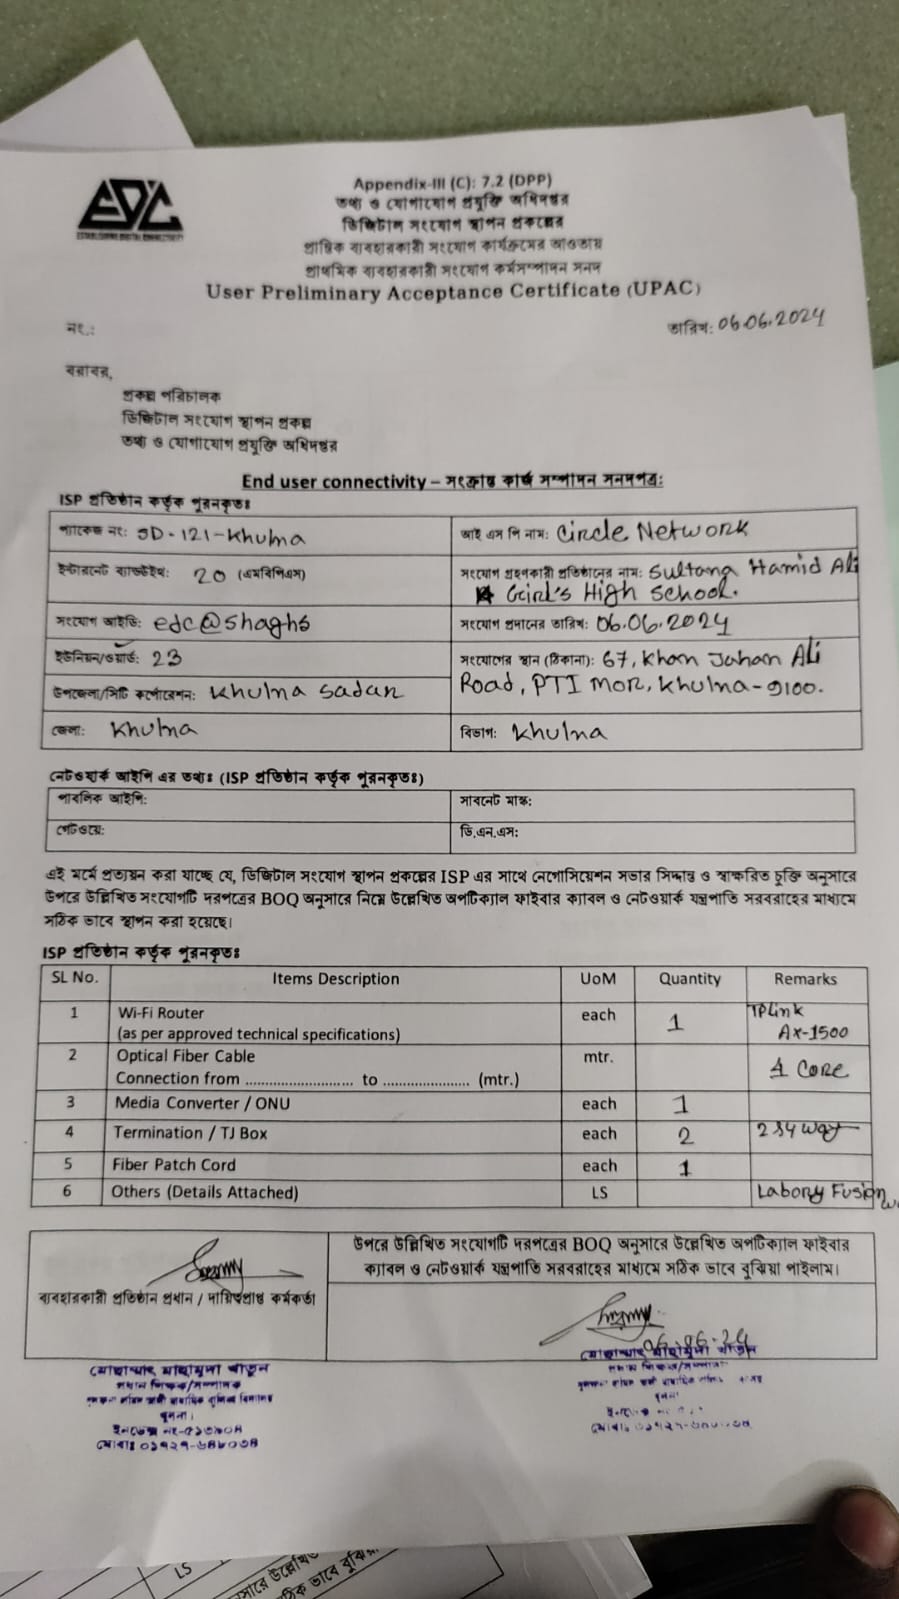 EDC
ESTABLISHING DIGITAL CONNECTIVITY
Appendix-III (C): 7.2 (DPP)
তথ্য ও যোগাযোগ প্রযুক্তি অধিদপ্তর
ডিজিটাল সংযোগ স্থাপন প্রকল্পের
প্রান্তিক ব্যবহারকারী সংযোগ কার্যক্রমের আওতায়
প্রাথমিক ব্যবহারকারী সংযোগ কর্মসম্পাদন সনদ
User Preliminary Acceptance Certificate (UPAC)
নং.:
তারিখ: 06.06.2024
বরাবর,
প্রকল্প পরিচালক
ডিজিটাল সংযোগ স্থাপন প্রকল্প
তথ্য ও যোগাযোগ প্রযুক্তি অধিদপ্তর
End user connectivity – সংক্রান্ত কার্য সম্পাদন সনদপত্র:
ISP প্রতিষ্ঠান কর্তৃক পূরনকৃতঃ
প্যাকেজ নং: SD-121-Khulna
আই এস পি নাম: Circle Network
ইন্টারনেট ব্যান্ডউইথ: 20 (এমবিপিএস)
সংযোগ গ্রহণকারী প্রতিষ্ঠানের নাম: Sultana Hamid Ali
Girl's High School.
সংযোগ আইডি: edc@shaghs
সংযোগ প্রদানের তারিখ: 06.06.2024
ইউনিয়ন/ওয়ার্ড: 23
সংযোগের স্থান (ঠিকানা): 67, Khan Jahan Ali
Road, PTI Mor, Khulna-9100.
উপজেলা/সিটি কর্পোরেশন: Khulna Sadar
জেলা: Khulna
বিভাগ: Khulna
নেটওয়ার্ক আইপি এর তথ্যঃ (ISP প্রতিষ্ঠান কর্তৃক পূরনকৃতঃ)
পাবলিক আইপি:
সাবনেট মাস্ক:
গেটওয়ে:
ডি.এন.এস:
এই মর্মে প্রত্যয়ন করা যাচ্ছে যে, ডিজিটাল সংযোগ স্থাপন প্রকল্পের ISP এর সাথে নেগোসিয়েশন সভার সিদ্ধান্ত ও স্বাক্ষরিত চুক্তি অনুসারে
উপরে উল্লিখিত সংযোগটি দরপত্রের BOQ অনুসারে নিম্নে উল্লেখিত অপটিক্যাল ফাইবার ক্যাবল ও নেটওয়ার্ক যন্ত্রপাতি সরবরাহের মাধ্যমে
সঠিক ভাবে স্থাপন করা হয়েছে।
ISP প্রতিষ্ঠান কর্তৃক পূরনকৃতঃ
SL No. Items Description UoM Quantity Remarks
1 Wi-Fi Router each 1 TPLink
(as per approved technical specifications) AX-1500
2 Optical Fiber Cable mtr. 4 Core
Connection from ........................... to ...................... (mtr.)
3 Media Converter / ONU each 1
4 Termination / TJ Box each 2 2 & 4 way
5 Fiber Patch Cord each 1
6 Others (Details Attached) LS Labony Fusion
উপরে উল্লিখিত সংযোগটি দরপত্রের BOQ অনুসারে উল্লেখিত অপটিক্যাল ফাইবার
ক্যাবল ও নেটওয়ার্ক যন্ত্রপাতি সরবরাহের মাধ্যমে সঠিক ভাবে বুঝিয়া পাইলাম।
ব্যবহারকারী প্রতিষ্ঠান প্রধান / দায়িত্বপ্রাপ্ত কর্মকর্তা
06.06.24
মোছাম্মাৎ মাহামুদা খাতুন
প্রধান শিক্ষক/সম্পাদক
খুলনা।
মোছাম্মাৎ মাহামুদা খাতুন
প্রধান শিক্ষক/সম্পাদক
খুলনা
LS